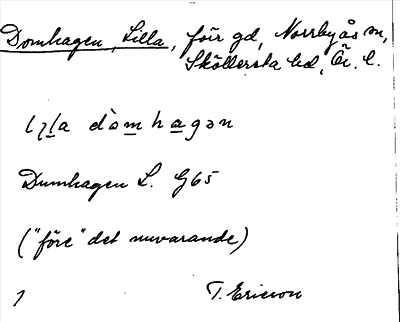 Domhagen, Lilla, förr gd, Norrbyås sn,
Sköllersta hd, Ör. l.
l̀ı̣la dòmhagən
Dumhagen L. G65
("före" det nuvarande)
1 T. Ericson